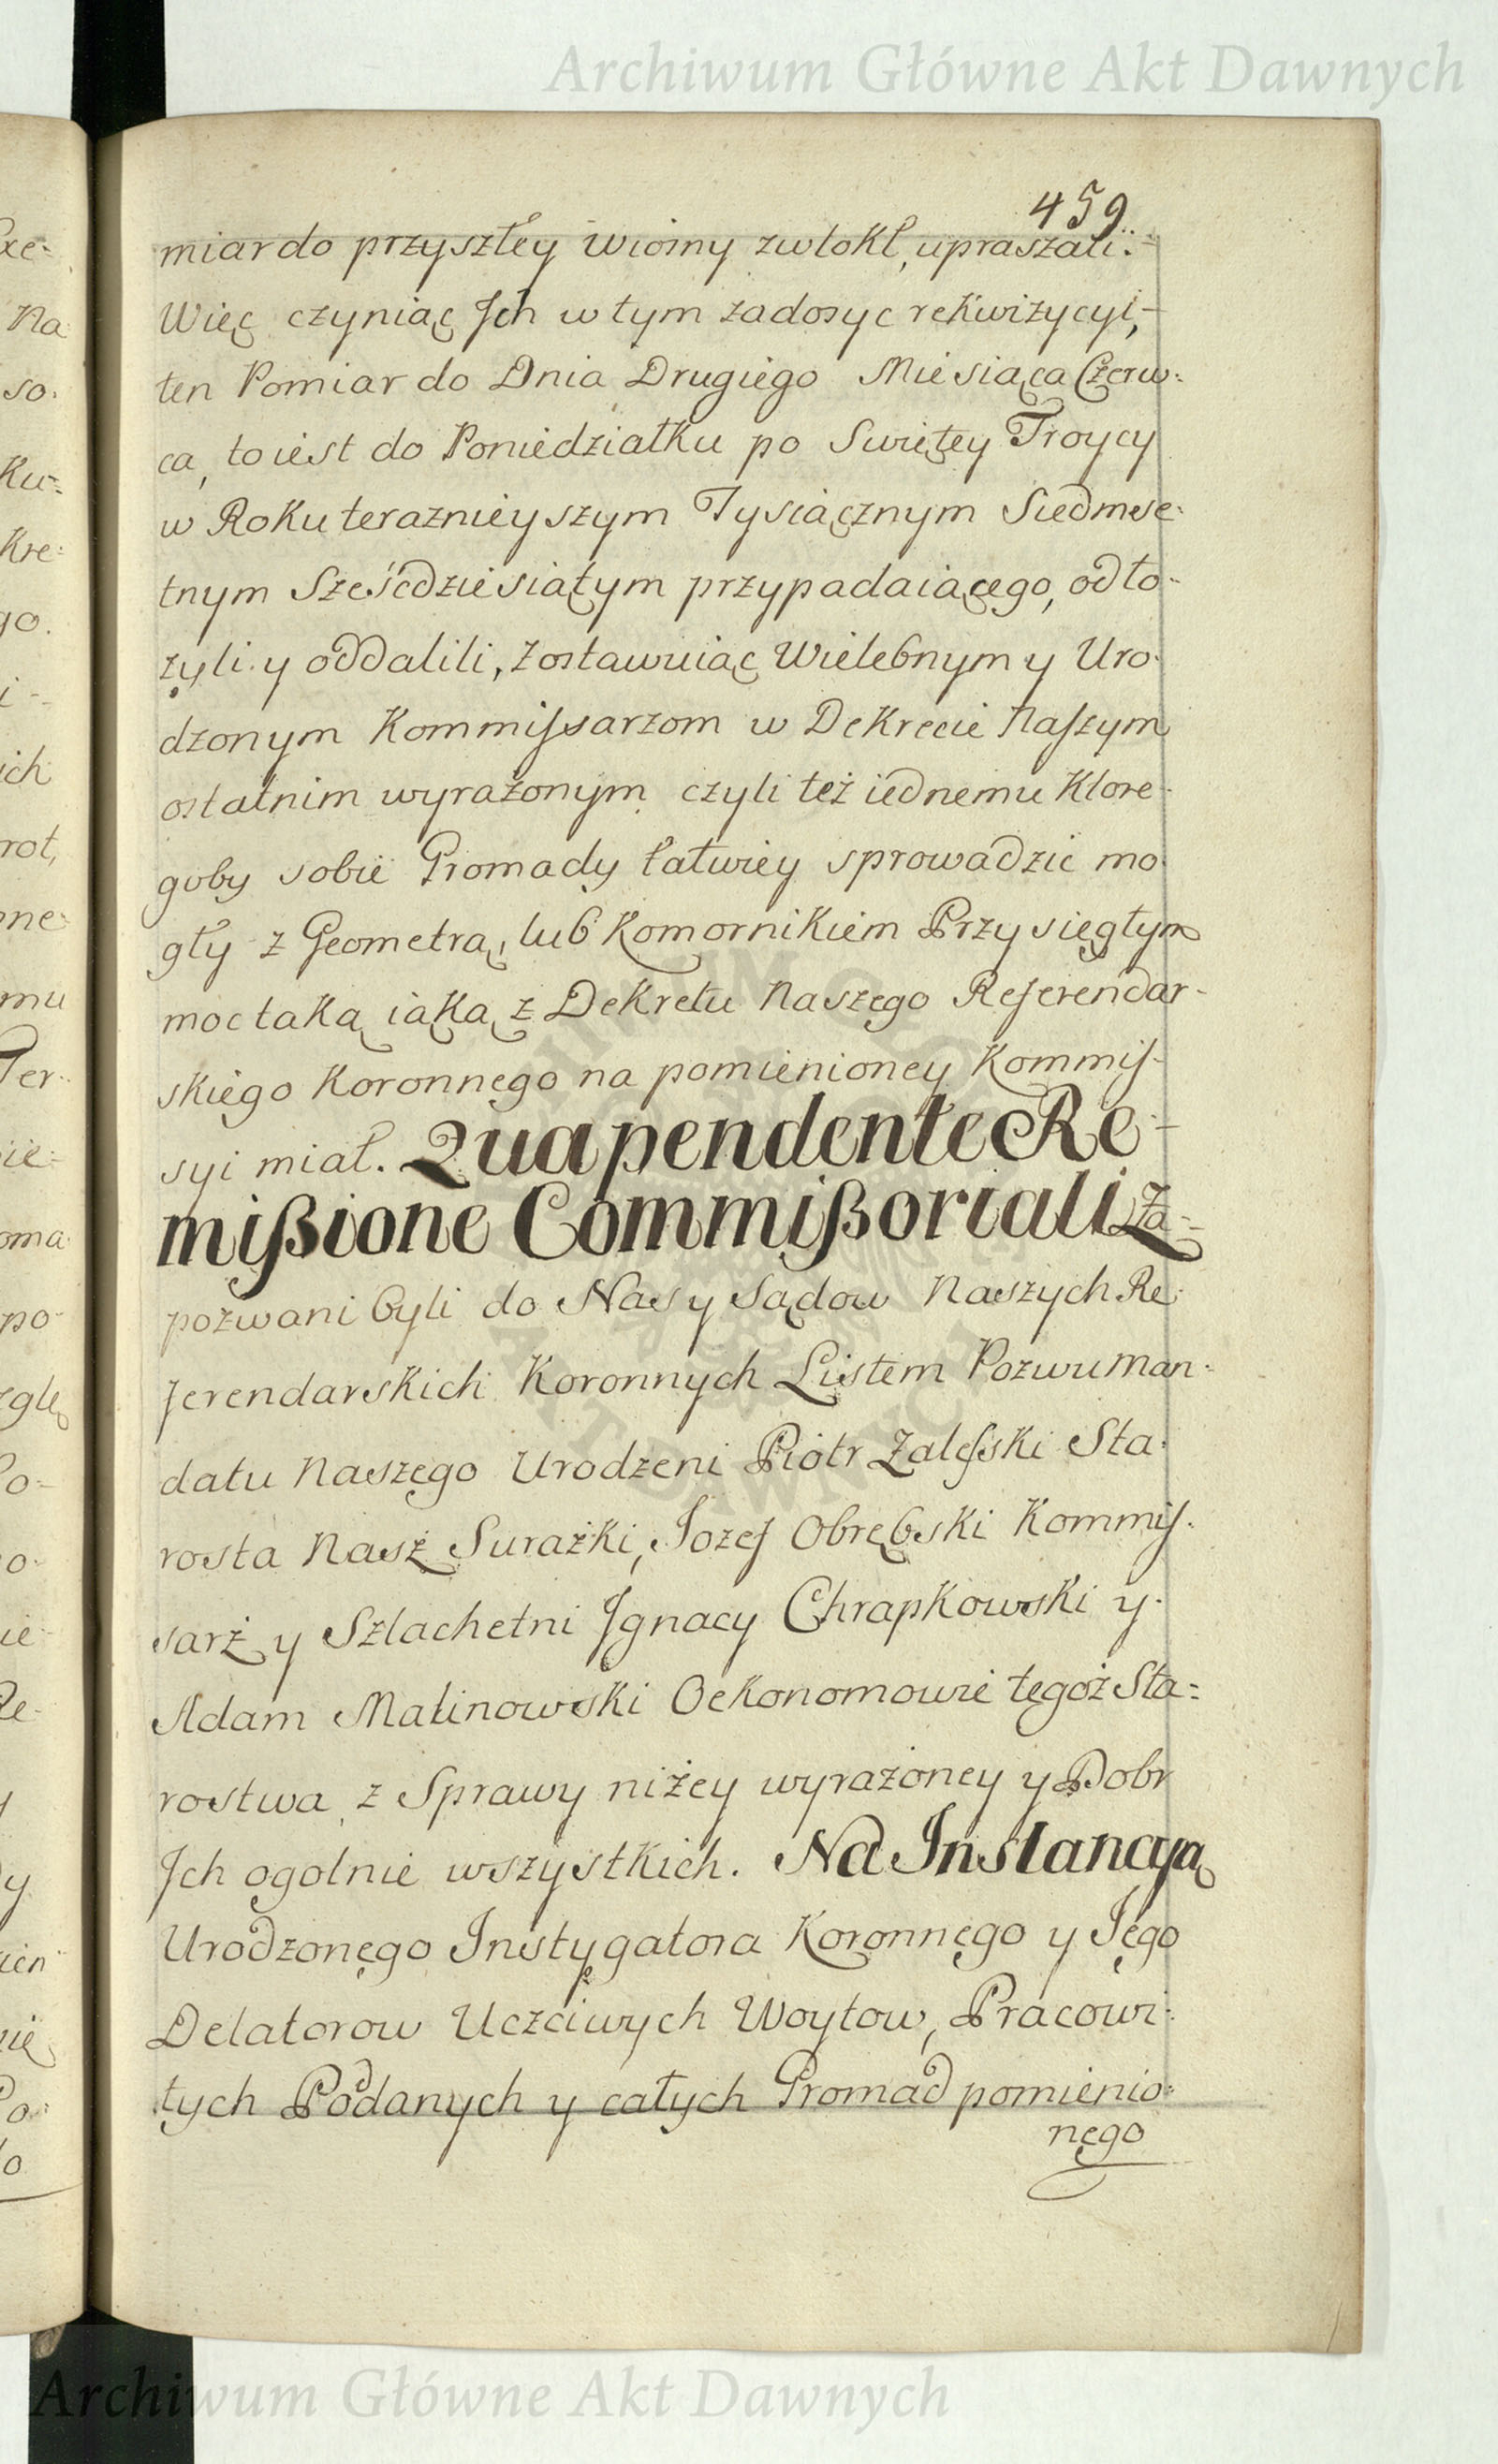 Archiwum Główne Akt Dawnych
459
miar do przyszłey wiosny zwlokł, upraszali:
Więc czyniąc Ich w tym zadosyc rekwizycyi,
ten Pomiar do Dnia Drugiego Miesiąca Czerw:
ca, to iest do Poniedziałku po Swiętey Troycy
w Roku teraznieyszym Tysiącznym Siedmse:
tnym Sześćdziesiątym przypadaiącego, odło-
żyli y oddalili, zostawuiąc Wielebnym y Uro-
dzonym Kommissarzom w Dekrecie Naszym
ostatnim wyrażonym czyli też iednemu Ktore-
goby sobie Gromady łatwiey sprowadzic mo-
gły z Geometrą, lub Komornikiem Przysięgłym
moc taką iaką z Dekretu Naszego Referendar-
skiego Koronnego na pomienioney Kommis-
syi miał. Qua pendente Re-
mißione Commißoriali Za-
pozwani byli do Nas y Sądow Naszych Re-
ferendarskich Koronnych Listem Pozwu Man-
datu Naszego Urodzeni Piotr Zaleski Sta-
rosta Nasz Surażki, Iozef Obrębski Kommis-
sarz y Szlachetni Ignacy Chrapkowski y
Adam Malinowski Oekonomowie tegoż Sta=
rostwa z Sprawy niżey wyrażoney y Dobr
Ich ogolnie wszystkich. Na Instancyą
Urodzonego Instygatora Koronnego y Iego
Delatorow Uczciwych Woytow, Pracowi-
tych Podanych y całych Gromad pomienio-
nego
Archiwum Główne Akt Dawnych